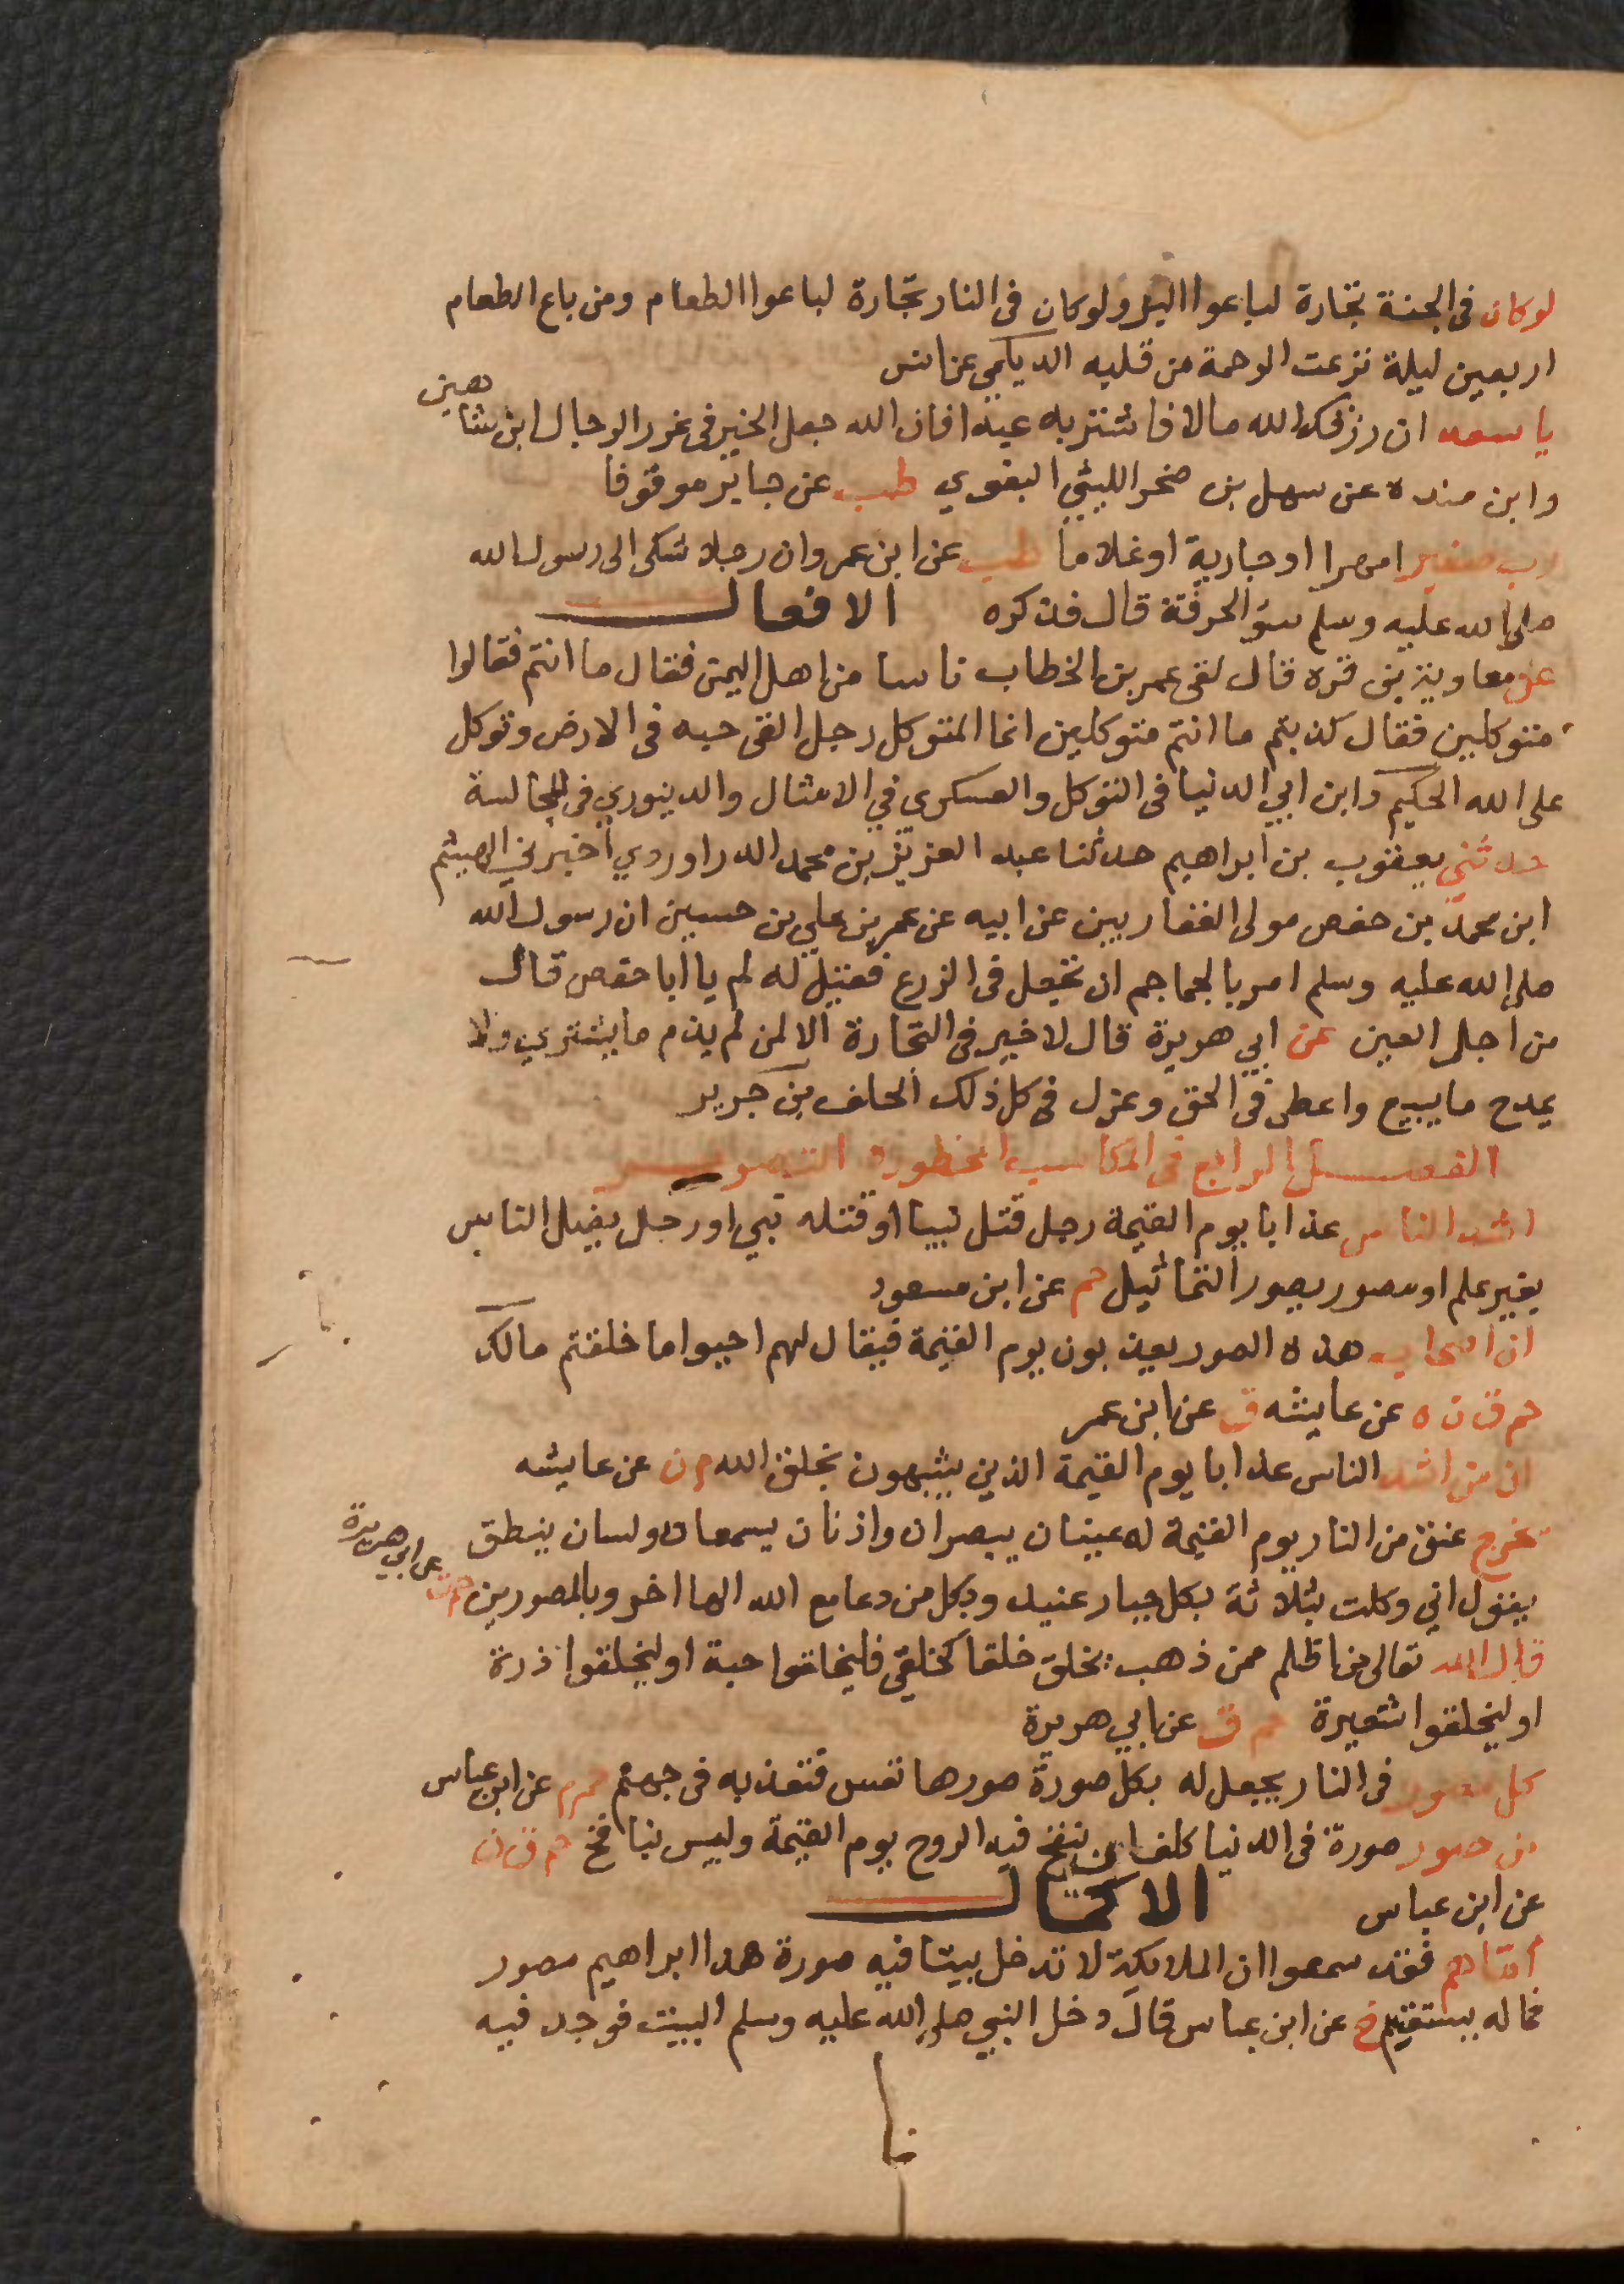 لوكان فى الجنة تجارة لباعوا البز ولوكان فى النار تجارة لباعوا الطعام ومن باع الطعام
اربعين ليلة نزعت الرحمة من قلبه الديلمي عن انس
يا سعد ان رزقك الله مالا فاشتر به عبدا فان الله جعل الخير فى غرر الرجال ابن شاهين
وابن منده عن سهل بن صخر الليثي البغوي طب عن جابر موقوفا
امهرا او جارية او غلاما طب عن ابن عمر وان رجلا شكى الى رسول الله
صلى الله عليه وسلم سؤ الحرفة قال فذكره الافعال
عن معاوية بن قره قال لقى عمر بن الخطاب ناسا من اهل اليمن فقال ما انتم فقالوا
متوكلين فقال كذبتم ما انتم متوكلين انما المتوكل رجل القى حبه فى الارض وتوكل
على الله الحكيم وابن ابي الدنيا فى التوكل والعسكرى في الامثال والدينوري فى المجالسة
حدثني يعقوب بن ابراهيم حدثنا عبد العزيز بن محمد الدراوردي اخبرني الهيثم
ابن محمد بن حفص مولى الغفاريين عن ابيه عن عمر بن علي بن حسين ان رسول الله
صلى الله عليه وسلم امر بالجماجم ان تجعل فى الزرع فقيل له لم يا ابا حفص قال
من اجل العين عن ابي هريرة قال لا خير فى التجارة الا لمن لم يذم ما يشتري ولا
يمدح ما يبيع واعطى فى الحق وعزل فى كل ذلك الحلف بن جرير
الفصل الرابع فى المكاسب المحظورة التصوير
اشد الناس عذابا يوم القيمة رجل قتل نبيا او قتله نبي او رجل يضل الناس
بغير علم او مصور يصور التماثيل حم عن ابن مسعود
ان اصحاب هذه الصور يعذبون يوم القيمة فيقال لهم احيوا ما خلقتم مالك
حم ق ن ه عن عايشه ق عن ابن عمر
ان من اشد الناس عذابا يوم القيمة الذين يشبهون بخلق الله م ن عن عايشه
تخرج عنق من النار يوم القيمة له عينان يبصران واذنان يسمعان ولسان ينطق
يقول اني وكلت بثلاثة بكل جبار عنيد وبكل من دعا مع الله الها اخر وبالمصورين حم ت عن ابي هريرة
قال الله تعالى من اظلم ممن ذهب يخلق خلقا كخلقي فليخلقوا حبة او ليخلقوا ذرة
او ليخلقوا شعيرة حم ق عن ابي هريرة
كل مصور فى النار يجعل له بكل صورة صورها نفس فتعذبه فى جهنم حم م عن ابن عباس
من صور صورة فى الدنيا كلف ان ينفخ فيه الروح يوم القيمة وليس بنافخ حم ق ن
عن ابن عباس الاكمال
أما هم فقد سمعوا ان الملايكة لا تدخل بيتا فيه صورة هذا ابراهيم مصور
فما له يستقيم خ عن ابن عباس قال دخل النبي صلى الله عليه وسلم البيت فوجد فيه